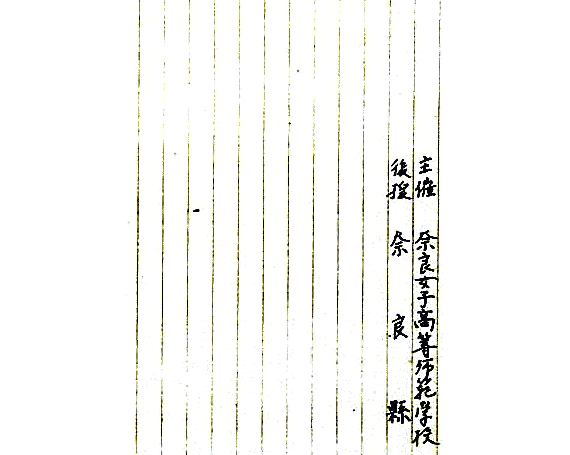 主催 奈良女子高等師範学校
後援 奈良縣